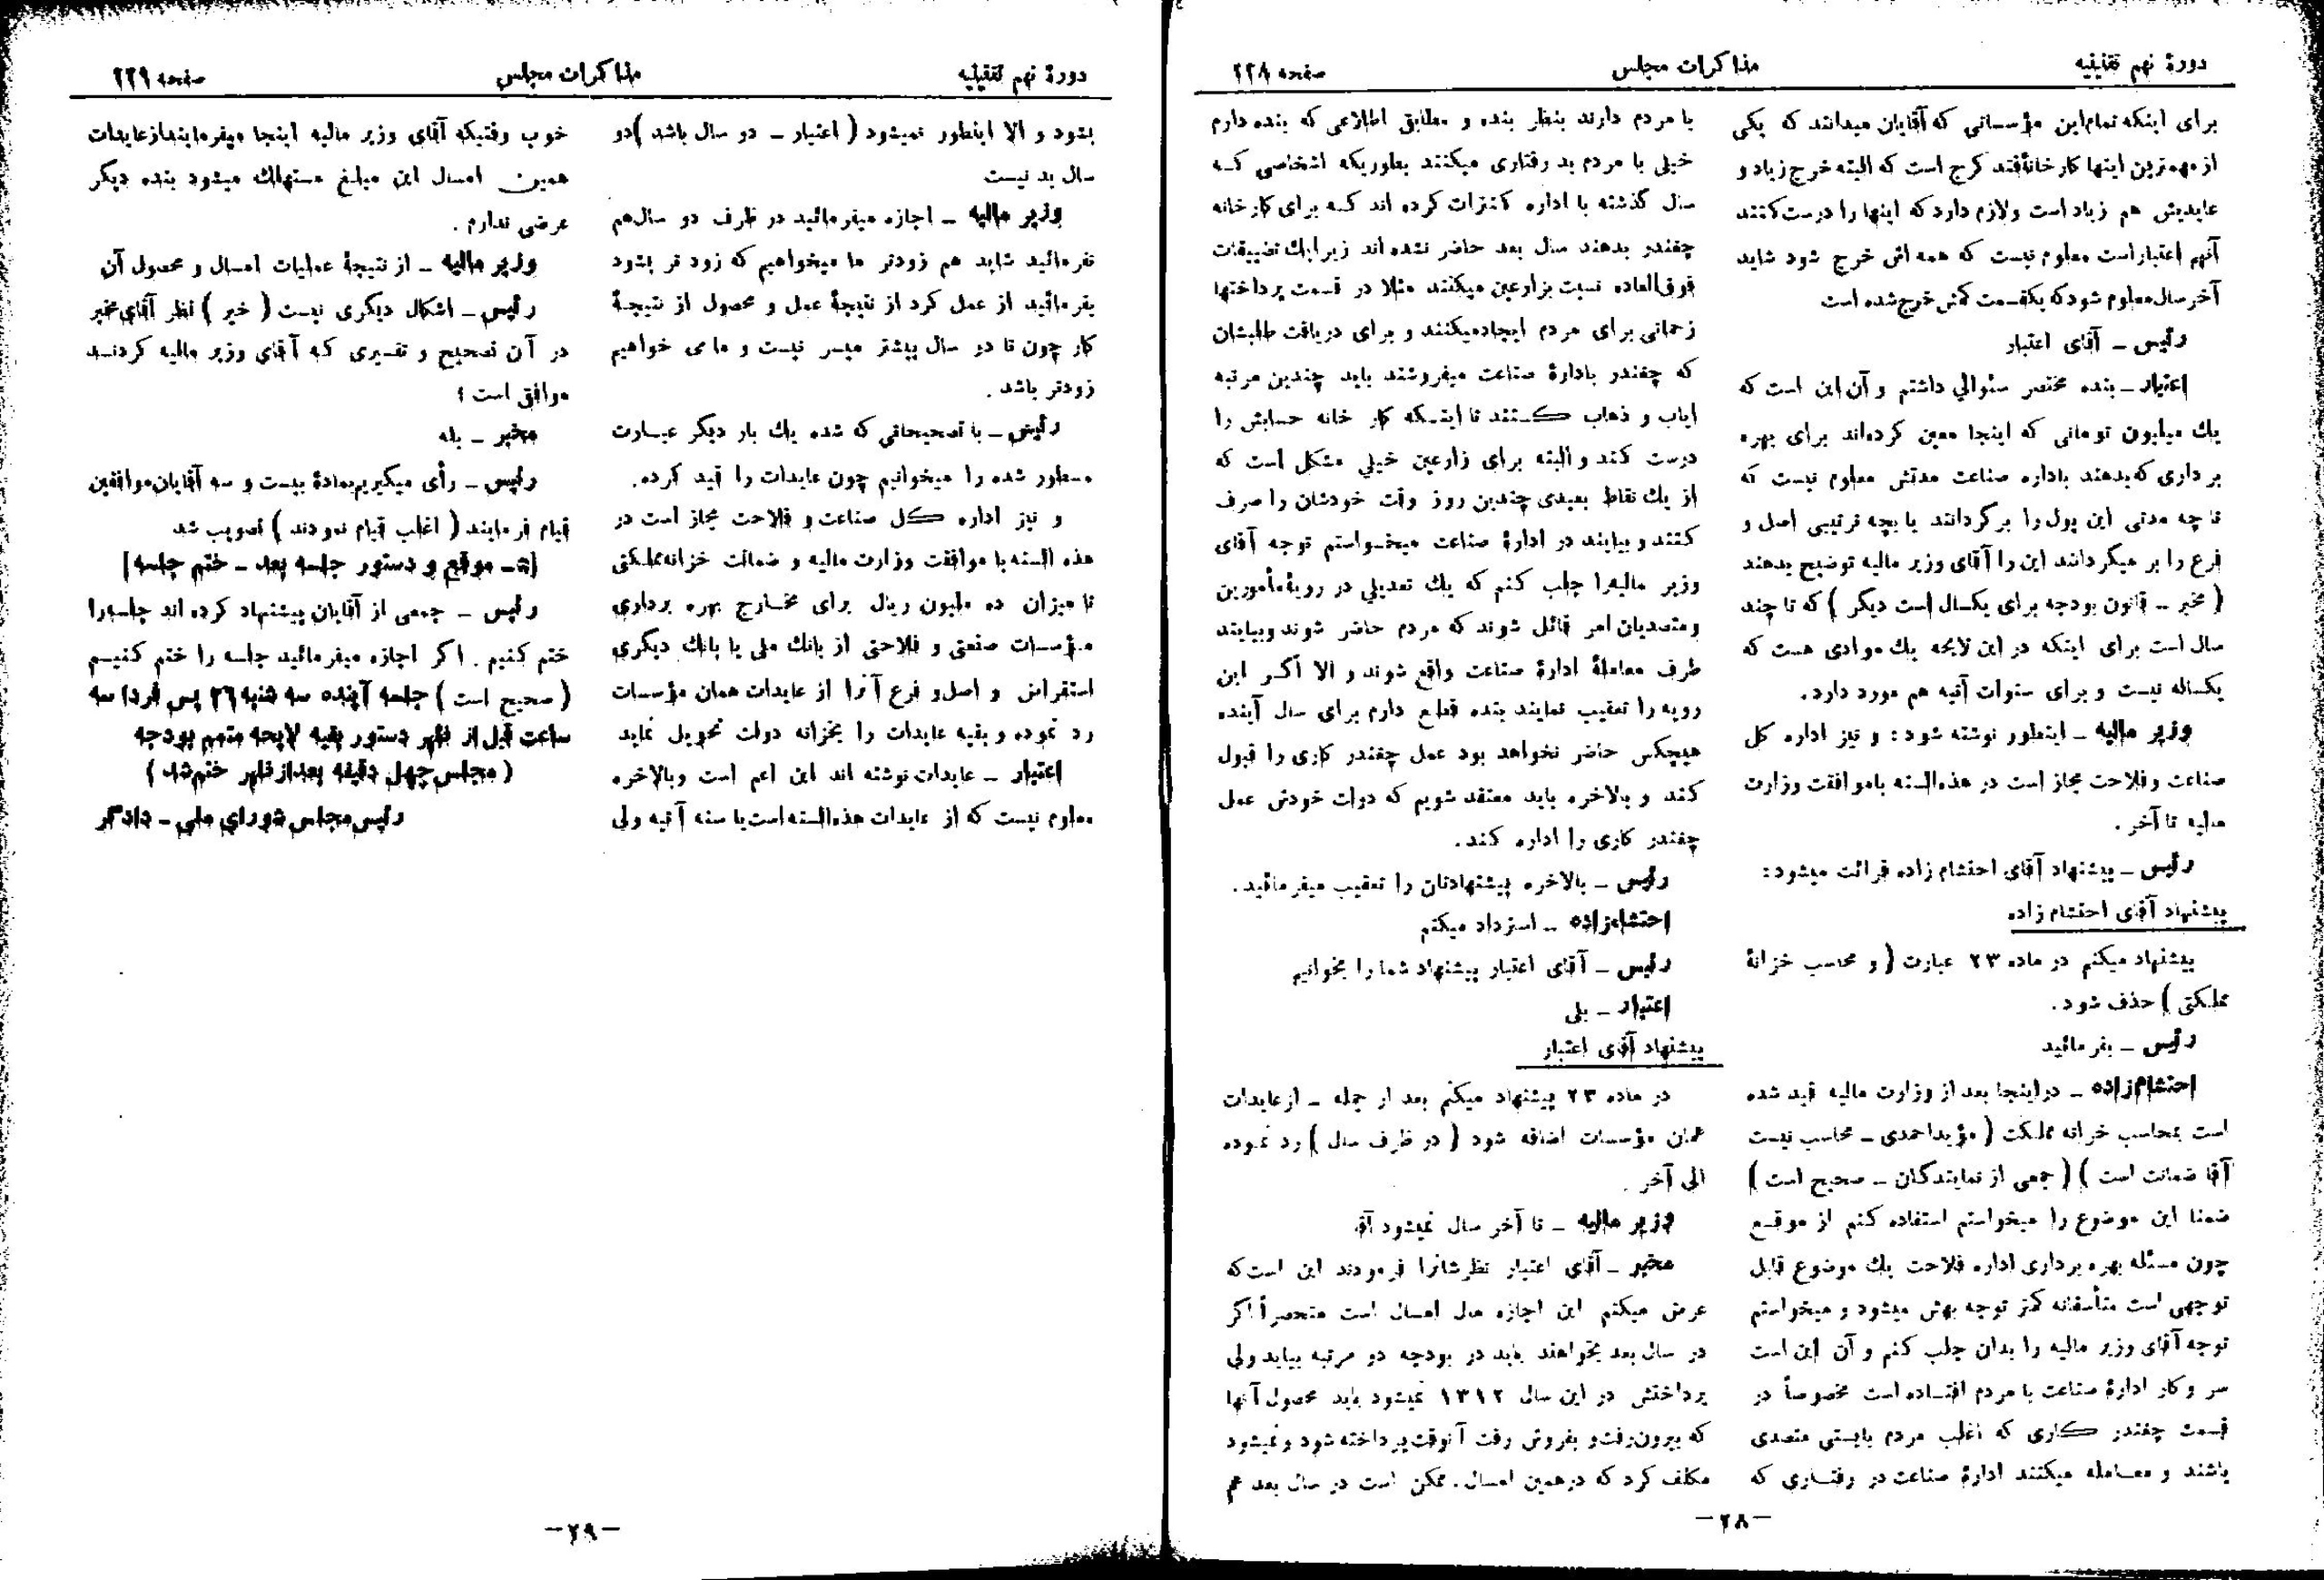 دورهٔ نهم تقنینیه
مذاکرات مجلس
صفحه ۲۲۸
برای اینکه تمام این مؤسساتی که آقایان میدانند که یکی
از مهمترین اینها کارخانهٔ قند کرج است که البته خرج زیاد و
عایدیش هم زیاد است و لازم دارد که اینها را درست کنند
آنهم اعتبار است معلوم نیست که همه اش خرج شود شاید
آخر سال معلوم شود که یکقسمت کمش خرج شده است
رئیس ـ آقای اعتبار
اعتبار ـ بنده مختصر سئوالی داشتم و آن این است که
یك میلیون تومانی که اینجا معین کرده‌اند برای بهره
برداری که بدهند باداره صناعت مدتش معلوم نیست که
تا چه مدتی این پول را برگردانند یا بچه ترتیبی اصل و
فرع را بر میگردانند این را آقای وزیر مالیه توضیح بدهند
( مخبر ـ قانون بودجه برای یکسال است دیگر ) که تا چند
سال است برای اینکه در این لایحه یك موادی هست که
یکساله نیست و برای سنوات آتیه هم مورد دارد.
وزیر مالیه ـ اینطور نوشته شود : و نیز اداره کل
صناعت و فلاحت مجاز است در هذه السنه باموافقت وزارت
مالیه تا آخر .
رئیس ـ پیشنهاد آقای احتشام زاده قرائت میشود :
پیشنهاد آقای احتشام زاده
پیشنهاد میکنم در ماده ۲۳ عبارت ( و محاسب خزانهٔ
مملکتی ) حذف شود .
رئیس ـ بفرمائید
احتشام زاده ـ در اینجا بعد از وزارت مالیه قید شده
است بمحاسب خزانه مملکت ( مؤید احمدی ـ محاسب نیست
آقا ضمانت است ) ( جمعی از نمایندگان ـ صحیح است )
ضمنا این موضوع را میخواستم استفاده کنم از موقع
چون مسئله بهره برداری اداره فلاحت یك موضوع قابل
توجهی است متأسفانه کمتر توجه بهش میشود و میخواستم
توجه آقای وزیر مالیه را بدان جلب کنم و آن این است
سر و کار ادارهٔ صناعت با مردم افتاده است مخصوصاً در
قسمت چغندر کاری که اغلب مردم بایستی متصدی
باشند و معامله میکنند ادارهٔ صناعت در رفتاری که
با مردم دارند بنظر بنده و مطابق اطلاعی که بنده دارم
خیلی با مردم بد رفتاری میکنند بطوریکه اشخاصی که
سال گذشته با اداره کنترات کرده اند که برای کارخانه
چغندر بدهند سال بعد حاضر نشده اند زیرا یك تضییقات
فوق العاده نسبت بزارعین میکنند مثلا در قسمت پرداختها
زحماتی برای مردم ایجاد میکنند و برای دریافت طلبشان
که چغندر بادارهٔ صناعت میفروشند باید چندین مرتبه
ایاب و ذهاب کنند تا اینکه کار خانه حسابش را
درست کند و البته برای زارعین خیلی مشکل است که
از یك نقاط بعیدی چندین روز وقت خودشان را صرف
کنند و بیایند در ادارهٔ صناعت میخواستم توجه آقای
وزیر مالیه را جلب کنم که یك تعدیلی در رویهٔ مأمورین
و متصدیان امر قائل شوند که مردم حاضر شوند و بیایند
طرف معاملهٔ ادارهٔ صناعت واقع شوند و الا اگر این
رویه را تعقیب نمایند بنده قطع دارم برای سال آینده
هیچکس حاضر نخواهد بود عمل چغندر کاری را قبول
کند و بالاخره باید معتقد شویم که دولت خودش عمل
چغندر کاری را اداره کند .
رئیس ـ بالاخره پیشنهادتان را تعقیب میفرمائید .
احتشام زاده ـ استرداد میکنم
رئیس ـ آقای اعتبار پیشنهاد شما را بخوانیم
اعتبار ـ بلی
پیشنهاد آقای اعتبار
در ماده ۲۳ پیشنهاد میکنم بعد از جمله ـ از عایدات
همان مؤسسات اضافه شود ( در ظرف سال ) رد نموده
الی آخر .
وزیر مالیه ـ تا آخر سال نمیشود آقا
مخبر ـ آقای اعتبار نظرشانرا فرمودند این است که
عرض میکنم این اجازه مال امسال است منحصراً اگر
در سال بعد بخواهند باید در بودجه دو مرتبه بیاید ولی
پرداختش در این سال ۱۳۱۲ نمیشود باید محصول آنها
که بیرون رفت و بفروش رفت آنوقت پرداخته شود و نمیشود
مکلف کرد که در همین امسال . ممکن است در سال بعد هم
ـ ۲۸ ـ
دورهٔ نهم تقنینیه
مذاکرات مجلس
صفحه ۲۲۹
بشود و الا اینطور نمیشود ( اعتبار ـ دو سال باشد ) دو
سال بد نیست
وزیر مالیه ـ اجازه میفرمائید در ظرف دو سال هم
نفرمائید شاید هم زودتر ما میخواهیم که زود تر بشود
بفرمائید از عمل کرد از نتیجهٔ عمل و محصول از نتیجهٔ
کار چون تا دو سال بیشتر میسر نیست و ما می خواهیم
زودتر باشد .
رئیس ـ با تصحیحاتی که شده یك بار دیگر عبارت
مسطور شده را میخوانیم چون عایدات را قید کرده .
و نیز اداره کل صناعت و فلاحت مجاز است در
هذه السنه با موافقت وزارت مالیه و ضمانت خزانه مملکتی
تا میزان ده ملیون ریال برای مخارج بهره برداری
مؤسسات صنعتی و فلاحتی از بانك ملی یا بانك دیگری
استقراض و اصل و فرع آنرا از عایدات همان مؤسسات
رد نموده و بقیه عایدات را بخزانه دولت تحویل نماید
اعتبار ـ عایدات نوشته اند این اعم است و بالاخره
معلوم نیست که از عایدات هذه السنه است یا سنه آتیه ولی
خوب وقتیکه آقای وزیر مالیه اینجا میفرمایند از عایدات
همین امسال این مبلغ مستهلك میشود بنده دیگر
عرضی ندارم .
وزیر مالیه ـ از نتیجهٔ عملیات امسال و محصول آن
رئیس ـ اشکال دیگری نیست ( خیر ) نظر آقای مخبر
در آن تصحیح و تفسیری که آقای وزیر مالیه کردند
موافق است ؟
مخبر ـ بله
رئیس ـ رأی میگیریم بمادهٔ بیست و سه آقایان موافقین
قیام فرمایند ( اغلب قیام نمودند ) تصویب شد
[۵ـ موقع و دستور جلسه بعد ـ ختم جلسه]
رئیس ـ جمعی از آقایان پیشنهاد کرده اند جلسه را
ختم کنیم . اگر اجازه میفرمائید جلسه را ختم کنیم
( صحیح است ) جلسه آینده سه شنبه ۲۶ پس فردا سه
ساعت قبل از ظهر دستور بقیه لایحه متمم بودجه
( مجلس چهل دقیقه بعد از ظهر ختم شد )
رئیس مجلس شورای ملی ـ دادگر
ـ ۲۹ ـ